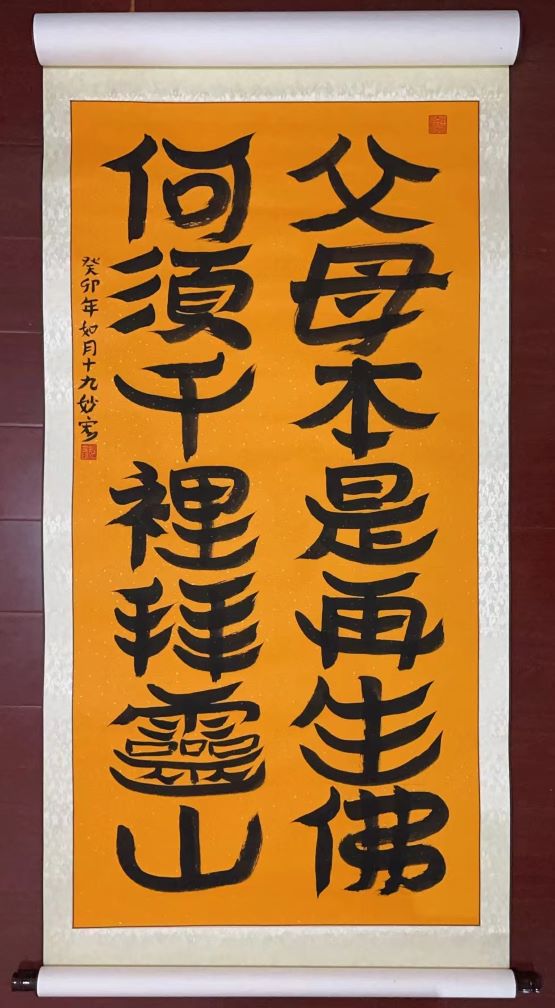 父母本是再生佛
何須千裡拜靈山
癸卯年如月十九妙宏